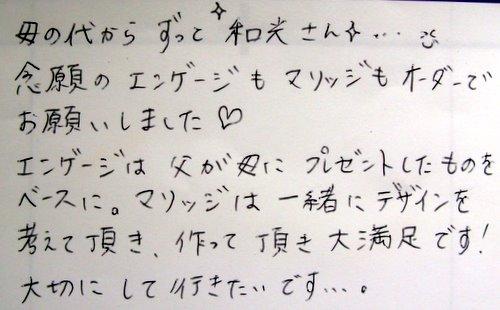 母の代から ずっと 和光さん✧… ☺
念願の エンゲージも マリッジも オーダーで
お願いしました♡
エンゲージは 父が母に プレゼントしたものを
ベースに。マリッジは 一緒に デザインを
考えて頂き、作って頂き 大満足です!
大切に して行きたいです…。